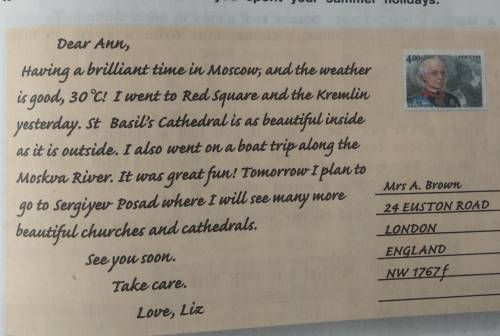 you spent your summer holidays.
Dear Ann,
Having a brilliant time in Moscow, and the weather
is good, 30°C! I went to Red Square and the Kremlin
yesterday. St Basil's Cathedral is as beautiful inside
as it is outside. I also went on a boat trip along the
Moskva River. It was great fun! Tomorrow I plan to
go to Sergiyev Posad where I will see many more
beautiful churches and cathedrals.
See you soon.
Take care.
Love, Liz
4.00 РОССИЯ
Mrs A. Brown
24 EUSTON ROAD
LONDON
ENGLAND
NW 1767f